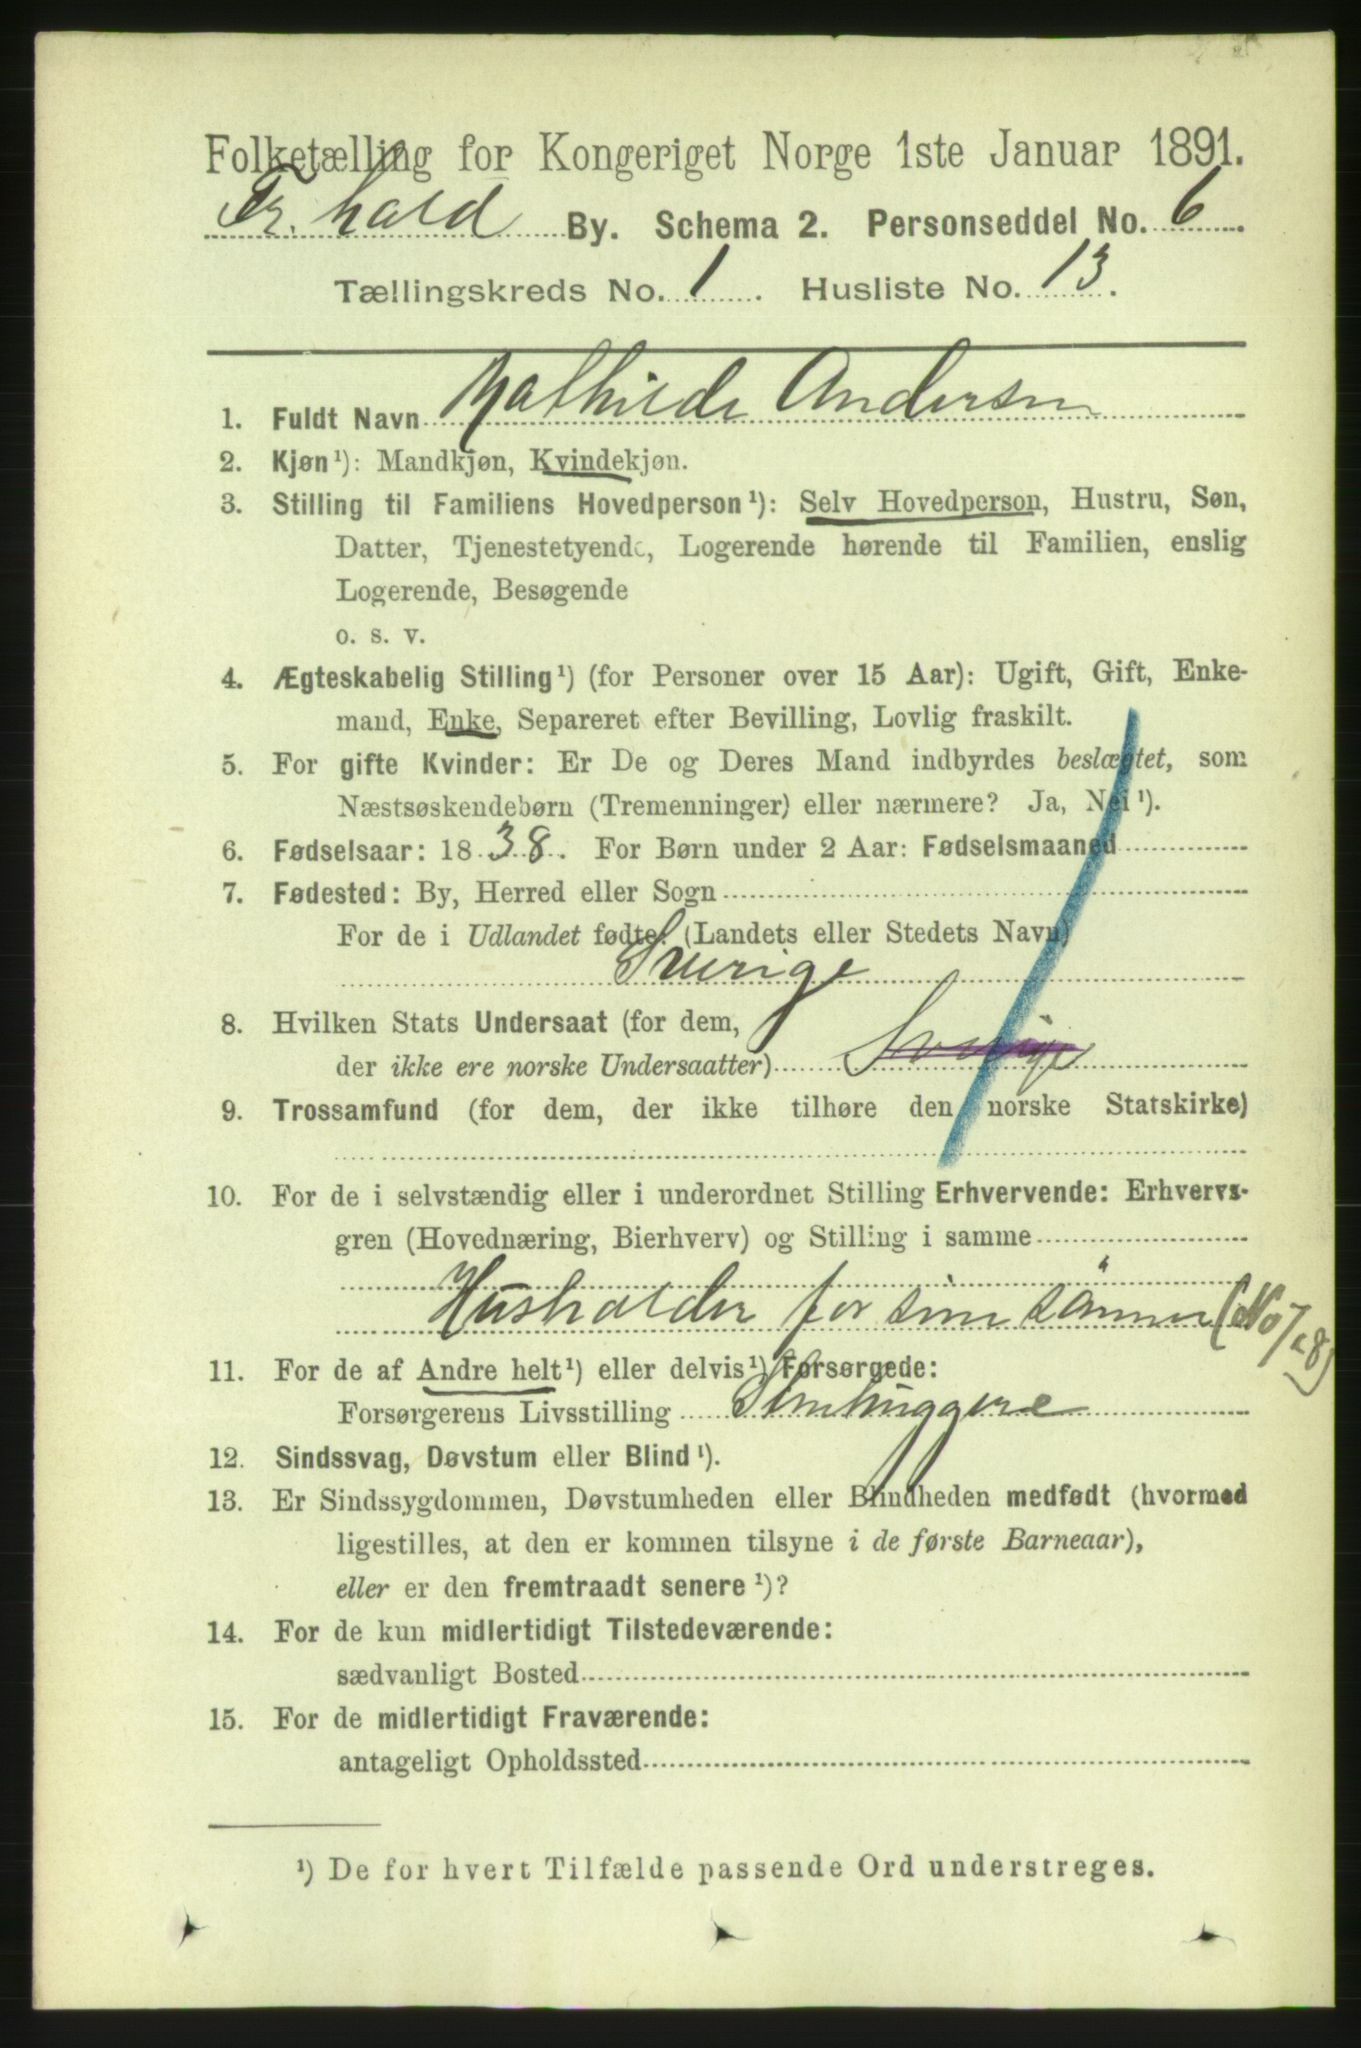 Folketælling for Kongeriget Norge 1ste Januar 1891.
Fr.hald By. Schema 2. Personseddel No. 6.
Tællingskreds No. 1. Husliste No. 13.
1. Fuldt Navn Mathilde Andersen
2. Kjøn¹): Mandkjøn, Kvindekjøn.
3. Stilling til Familiens Hovedperson¹): Selv Hovedperson, Hustru, Søn,
Datter, Tjenestetyende, Logerende hørende til Familien, enslig
Logerende, Besøgende
o. s. v.
4. Ægteskabelig Stilling¹) (for Personer over 15 Aar): Ugift, Gift, Enke-
mand, Enke, Separeret efter Bevilling, Lovlig fraskilt.
5. For gifte Kvinder: Er De og Deres Mand indbyrdes beslægtet, som
Næstsøskendebørn (Tremenninger) eller nærmere? Ja, Nei¹).
6. Fødselsaar: 1838. For Børn under 2 Aar: Fødselsmaaned
7. Fødested: By, Herred eller Sogn
For de i Udlandet fødte: (Landets eller Stedets Navn)
Sverige
8. Hvilken Stats Undersaat (for dem,
der ikke ere norske Undersaatter) Sverige
9. Trossamfund (for dem, der ikke tilhøre den norske Statskirke)
10. For de i selvstændig eller i underordnet Stilling Erhvervende: Erhvervs-
gren (Hovednæring, Bierhverv) og Stilling i samme
Husholder for sine sönner (No 7 & 8)
11. For de af Andre helt¹) eller delvis¹) Forsørgede:
Forsørgerens Livsstilling Stenhuggere
12. Sindssvag, Døvstum eller Blind¹).
13. Er Sindssygdommen, Døvstumheden eller Blindheden medfødt (hvormed
ligestilles, at den er kommen tilsyne i de første Barneaar),
eller er den fremtraadt senere¹)?
14. For de kun midlertidigt Tilstedeværende:
sædvanligt Bosted
15. For de midlertidigt Fraværende:
antageligt Opholdssted
¹) De for hvert Tilfælde passende Ord understreges.